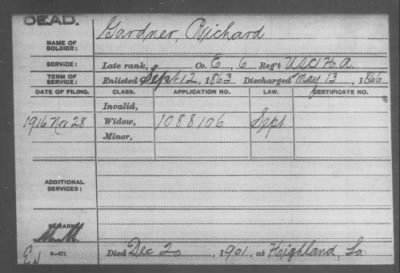 DEAD.
NAME OF SOLDIER: Gardner, Richard
SERVICE: Late rank, Co. E, 6 Reg't U.S.C.H.A.
TERM OF SERVICE: Enlisted Sept. 12, 1863 Discharged May 13, 1866
DATE OF FILING. CLASS. APPLICATION NO. LAW. CERTIFICATE NO.
Invalid,
1916 Nov 28 Widow, 1088106 Sept
Minor,
ADDITIONAL SERVICES:
REMARKS:
3-471
Died Dec 20, 1901, at Highland, La.